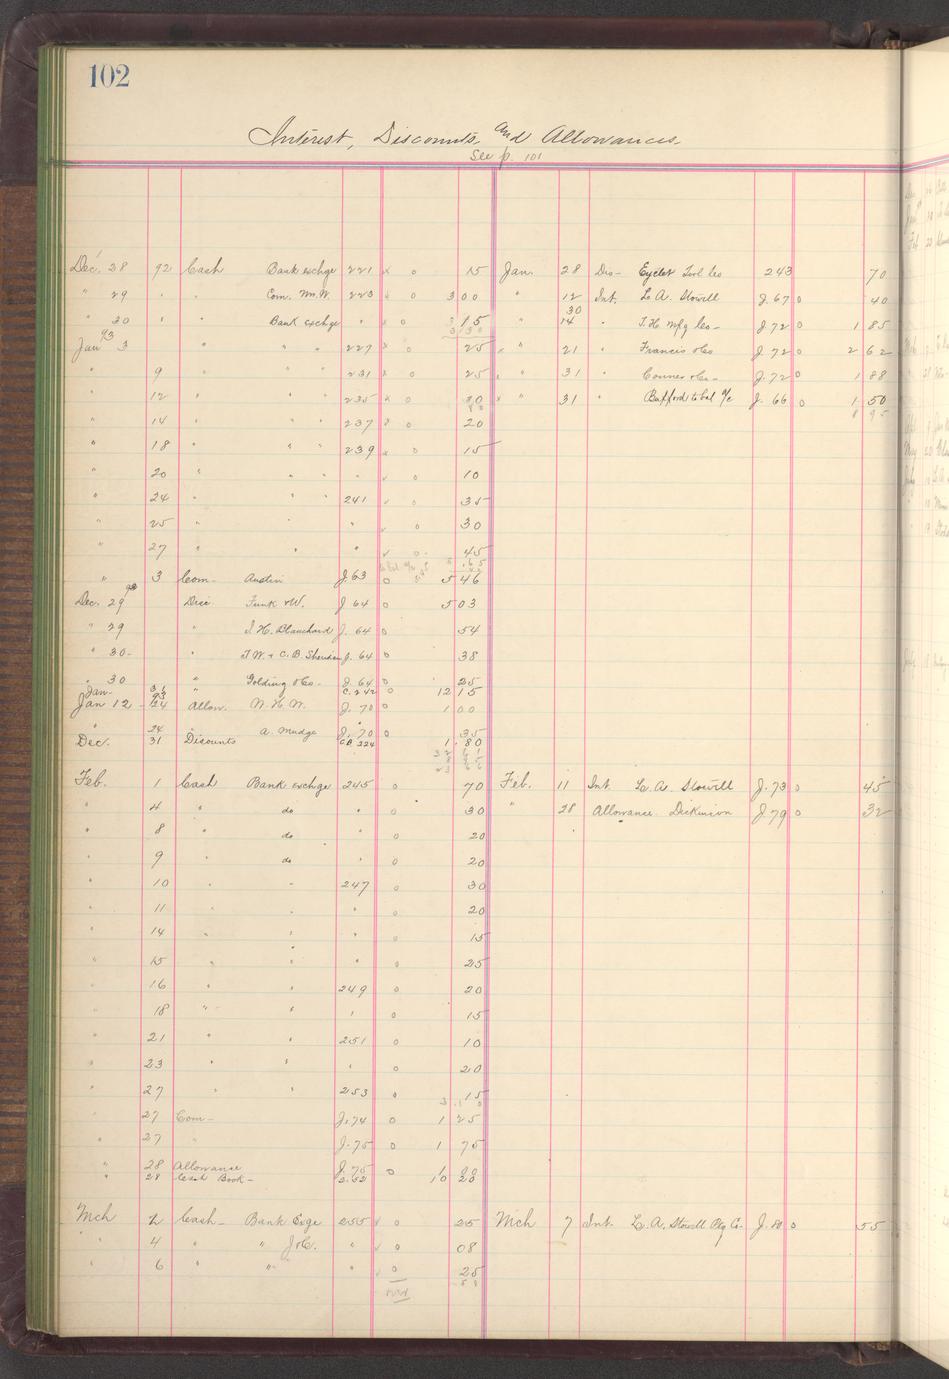 102
Interest, Discounts and Allowances
See p. 101
Dec. 28 92 Cash Bank exchge 221 x o 15 Jan. 28 Dis- Eyelet Tool Co 243 70
" 29 " " Com. Wm.W. 223 x o 3 00 " 12 Int. L. A. Stowell J. 67 o 40
" 30 " " Bank exchge " x o 15 " 30 14 " T. H. Mfg Co- J 72 o 1 85
93
Jan 3 " " " 227 x o 25 " 21 " Francis & Co J. 72 o 2 62
" 9 " " " 231 x o 25 " 31 " Conner & Co- J. 72 o 1 88
" 12 " " " 235 x o 30 " 31 " Bufford to bal a/c J. 66 o 1 50
8 95
" 14 " " 237 x o 20
" 18 " " " 239 x o 15
" 20 " " " " o 10
" 24 " " " 241 o 35
" 25 " " " o 30
" 27 " " " o 45
" 3 Com- Austin J. 63 o 5 46
Dec. 29 92 Disc. Funk & W. J 64 o 5 03
" 29 " I. H. Blanchard J. 64 o 54
" 30- " T. W. & C. B. Sheridan J. 64 o 38
" 30 " Golding & Co- J. 64 o 25
Jan. 31 " C. 242 o 12 15
93
Jan 12 - 24 Allow. N. H. W. J. 70 o 1 00
" 24 " A. Mudge J. 70 o 35
Dec. 31 Discounts CB 224 1 80
Feb. 1 Cash Bank exchge 245 o 70 Feb. 11 Int. L. A. Stowell J. 73 o 45
" 4 " do " o 30 " 28 Allowance Dickinson J. 79 o 32
" 8 " do " o 20
" 9 " do " o 20
" 10 " " 247 o 30
" 11 " " " o 20
" 14 " " " o 15
" 15 " " " o 25
" 16 " " 249 o 20
" 18 " " " o 15
" 21 " " 251 o 10
" 23 " " " o 20
" 27 " " 253 o 15
" 27 Com- J. 74 o 1 25
" 27 " J. 75 o 1 75
" 28 Allowance J. 75 o
" 28 Cash Book - 252 10
Mch 2 Cash- Bank Exge 255 o 25 Mch 7 Int. L. A. Stowell Ptg Co. J. 80 o 55
" 4 " " J & C. " o 08
" 6 " " " o 25